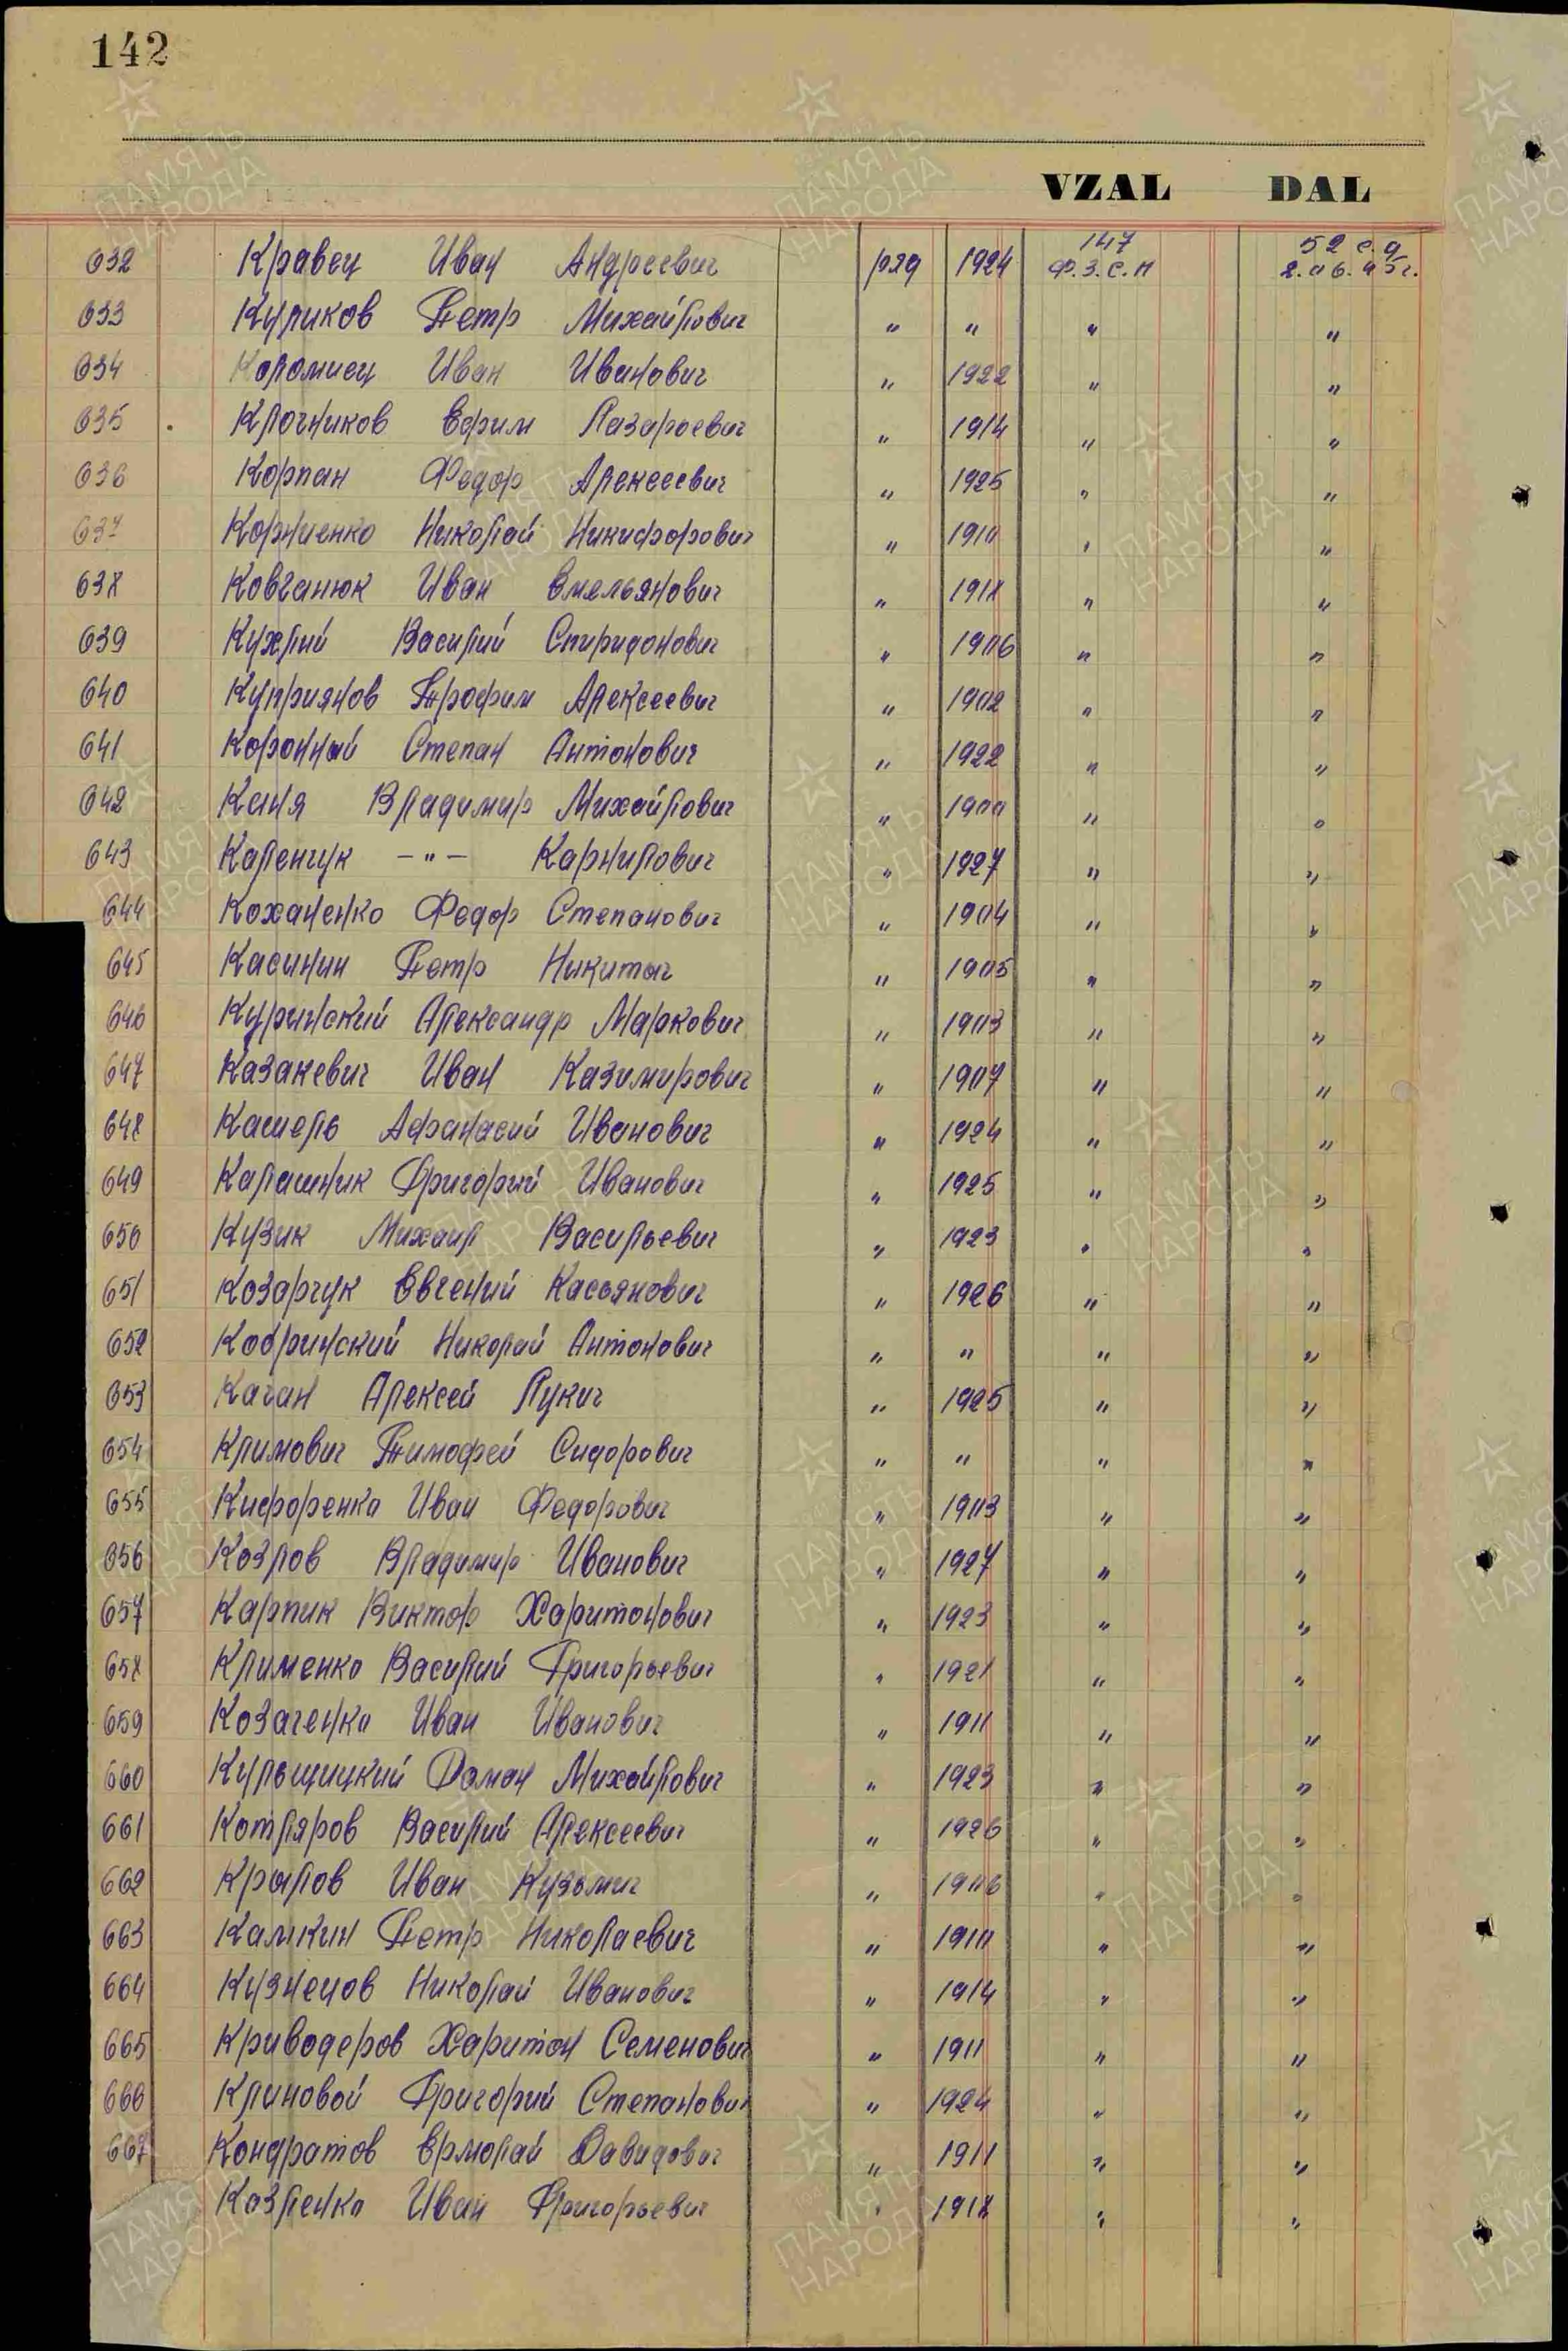 142
VZAL DAL
632 Кравец Иван Андреевич ряд 1924 147 Ф.З.С.П 52 с.д 2.06.45г.
633 Куликов Петр Михайлович " " " "
634 Коломиец Иван Иванович " 1922 " "
635 Ключников Ефим Лазарьевич " 1914 " "
636 Корпан Федор Алексеевич " 1925 " "
637 Корниенко Николай Никифорович " 1910 " "
638 Ковганюк Иван Емельянович " 1918 " "
639 Кухлий Василий Спиридонович " 1906 " "
640 Куприянов Трофим Алексеевич " 1902 " "
641 Коронный Степан Антонович " 1922 " "
642 Каня Владимир Михайлович " 1900 " "
643 Каленчук -"- Карнилович " 1927 " "
644 Коханенко Федор Степанович " 1904 " "
645 Касинин Петр Никитыч " 1905 " "
646 Куринский Александр Маркович " 1903 " "
647 Казакевич Иван Казимирович " 1907 " "
648 Кашель Афанасий Иванович " 1924 " "
649 Калашник Григорий Иванович " 1925 " "
650 Кузик Михаил Васильевич " 1923 " "
651 Козарчук Евгений Касьянович " 1926 " "
652 Кобринский Николай Антонович " " " "
653 Каган Алексей Лукич " 1925 " "
654 Климович Тимофей Сидорович " " " "
655 Кифоренко Иван Федорович " 1903 " "
656 Козлов Владимир Иванович " 1927 " "
657 Карпик Виктор Харитонович " 1923 " "
658 Клименко Василий Григорьевич " 1921 " "
659 Козаченко Иван Иванович " 1911 " "
660 Кульщицкий Роман Михайлович " 1923 " "
661 Котляров Василий Алексеевич " 1926 " "
662 Крылов Иван Кузьмич " 1906 " "
663 Камкин Петр Николаевич " 1910 " "
664 Кузнецов Николай Иванович " 1914 " "
665 Криводеров Харитон Семенович " 1911 " "
666 Клиновой Григорий Степанович " 1924 " "
667 Кондратов Ермолай Давидович " 1911 " "
Козленко Иван Григорьевич " 1918 " "